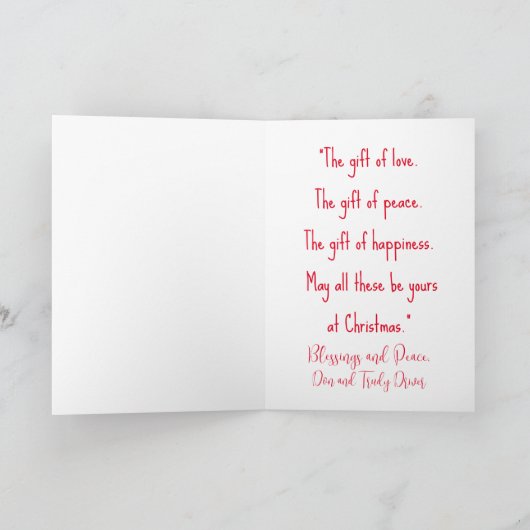 "The gift of love.
The gift of peace.
The gift of happiness.
May all these be yours
at Christmas."
Blessings and Peace,
Don and Trudy Driver